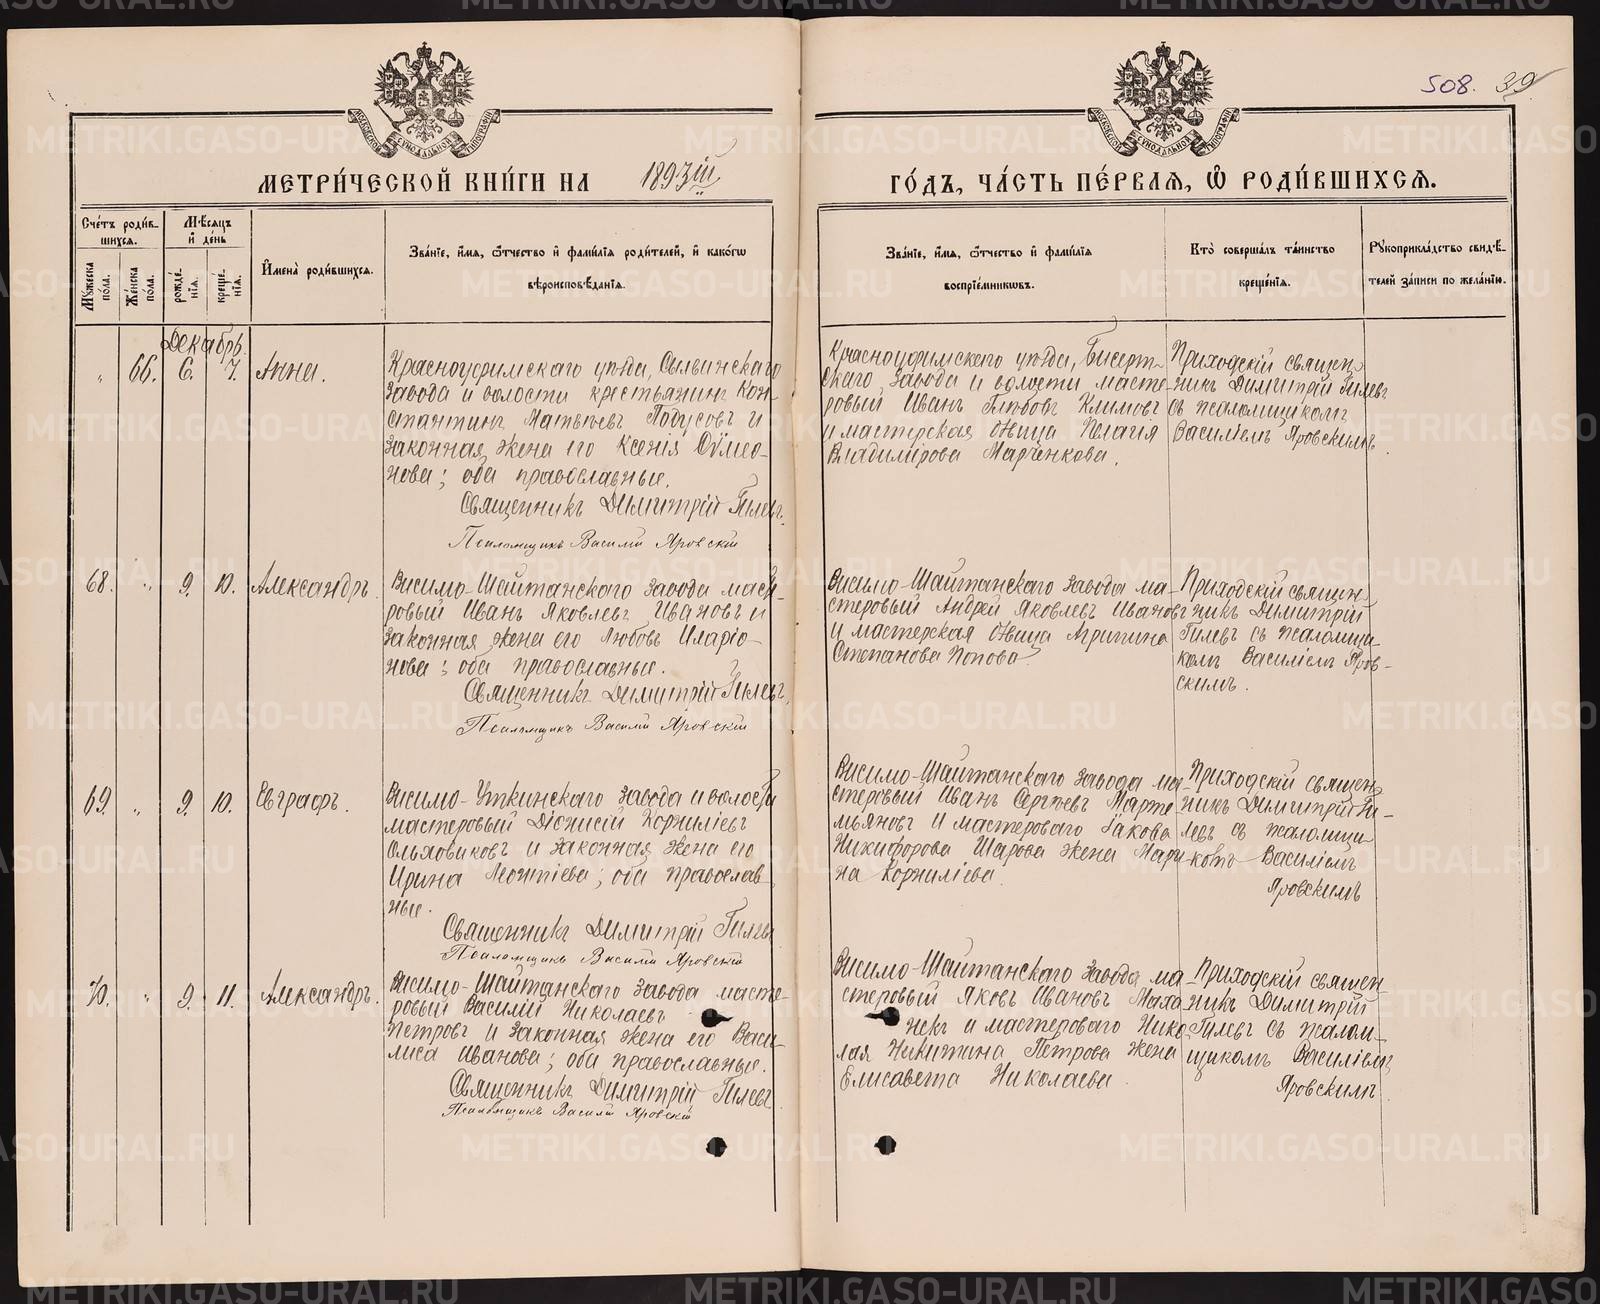 508. 39
МЕТРИ́ЧЕСКОЙ КНИ́ГИ НА 1893ій ГО́ДЪ, ЧА́СТЬ ПЕ́РВАѦ, Ѡ РОДИ́ВШИХСѦ.
Сче́тъ роди́в-
шихся.
Мꙋ́жеска по́ла.
Же́нска по́ла.
Мѣ́сяцъ
и҆ де́нь
рожде́-
нїя.
креще́-
нїя.
И҆мена̀ роди́вшихся.
Зва́нїе, и҆́мя, ѻ҆́тчество и҆ фами́лїя роди́телей, и҆ како́гѡ
вѣроисповѣ́данїя.
Зва́нїе, и҆́мя, ѻ҆́тчество и҆ фами́лїя
воспрїе́мникѡвъ.
Кто̀ соверша́лъ та́инство
креще́нїя.
Рꙋкоприкла́дство свидѣ́-
телей за́писи по жела́нїю.
Декабрь.
„ 66. 6. 7. Анна.
Красноуфимскаго уѣзда, Сылвинскаго
завода и волости крестьянинъ Кон-
стантинъ Матвѣевъ Подусовъ и
законная жена его Ксенія Сѵмео-
нова; оба православные.
Священникъ Димитрій Гилевъ.
Псаломщикъ Василій Яровскій
Красноуфимскаго уѣзда, Бисерт-
скаго завода и волости масте-
ровый Иванъ Глѣбовъ Климовъ
и мастерская дѣвица Пелагія
Владимірова Марченкова.
Приходскій священ-
никъ Димитрій Гилевъ
съ псаломщикомъ
Василіемъ Яровскимъ.
68. „ 9. 10. Александръ.
Висимо-Шайтанскаго завода масте-
ровый Иванъ Яковлевъ Ивановъ и
законная жена его Любовь Иларіо-
нова; оба православные.
Священникъ Димитрій Гилевъ.
Псаломщикъ Василій Яровскій
Висимо-Шайтанскаго завода ма-
стеровый Андрей Яковлевъ Ивановъ
и мастерская дѣвица Агрипина
Степанова Попова.
Приходскій священ-
никъ Димитрій
Гилевъ съ псаломщи-
комъ Василіемъ Яров-
скимъ.
69. „ 9. 10. Евграфъ.
Висимо-Уткинскаго завода и волости
мастеровый Діонисій Корниліевъ
Ольховиковъ и законная жена его
Ирина Леонтіева; оба православ-
ные.
Священникъ Димитрій Гилевъ
Псаломщикъ Василій Яровскій
Висимо-Шайтанскаго завода ма-
стеровый Иванъ Сергѣевъ Марте-
мьяновъ и мастероваго Іакова
Никифорова Шарова жена Мари-
на Корниліева.
Приходскій священ-
никъ Димитрій Ги-
левъ съ псаломщи-
комъ Василіемъ
Яровскимъ
70. „ 9. 11. Александръ.
Висимо-Шайтанскаго завода масте-
ровый Василій Николаевъ
Петровъ и законная жена его Васи-
лиса Иванова; оба православные.
Священникъ Димитрій Гилевъ
Псаломщикъ Василій Яровскій
Висимо-Шайтанскаго завода ма-
стеровый Яковъ Ивановъ Маха-
невъ и мастероваго Нико-
лая Никитина Петрова жена
Елисавета Николаева.
Приходскій священ-
никъ Димитрій
Гилевъ съ псалом-
щикомъ Василіемъ
Яровскимъ.